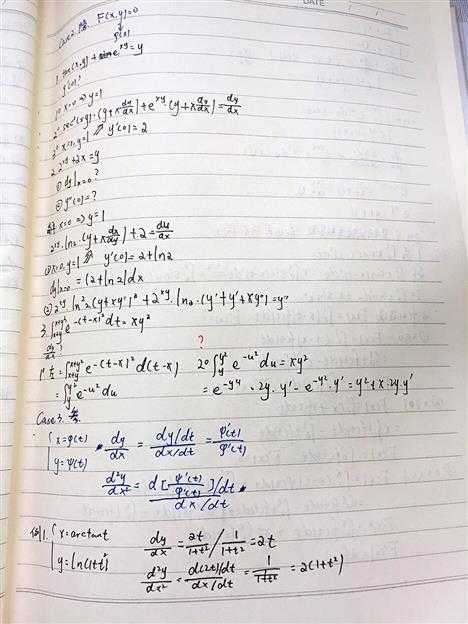 DATE
Case2. 隐. F(x,y)=0
↓
φ(x)
1. tan(x,y) + e^{xy} = y
y'(0)?
1° x=0 ⇒ y=1
2° sec²(xy)·(y+x dy/dx) + e^{xy}·(y+x dy/dx) = dy/dx
3° x=0, y=1 ↗ y'(0)=2
2. 2^{xy}+2x=y
① dy|x=0?
② y''(0)=?
解 x=0 ⇒ y=1
2^{xy}·ln2·(y+x dy/dx)+2 = dy/dx
① x=0, y=1 ↗ y'(0)=2+ln2
dy|x=0 = (2+ln2)dx
② 2^{xy} ln²2(y+xy')² + 2^{xy}·ln2·(y'+y'+xy'') = y''
3. ∫_{x+y}^{x+y²} e^{-(t-x)²} dt = xy²
dy/dx?
?
1° 左 = ∫_{x+y}^{x+y²} e^{-(t-x)²} d(t-x) 2° ∫_{y}^{y²} e^{-u²} du = xy²
= ∫_{y}^{y²} e^{-u²} du = e^{-y⁴}·2y·y' - e^{-y²}·y' = y²+x·2y·y'
Case3. 参.
{ x=φ(t) dy/dx = (dy/dt)/(dx/dt) = ψ'(t)/φ'(t)
y=ψ(t)
d²y/dx² = d[ψ'(t)/φ'(t)]/dt / dx/dt
例1. { x=arctant dy/dx = 2t/(1+t²) / 1/(1+t²) = 2t
y=ln(1+t²) d²y/dx² = d(2t)/dt / dx/dt = / 1/(1+t²) = 2(1+t²)